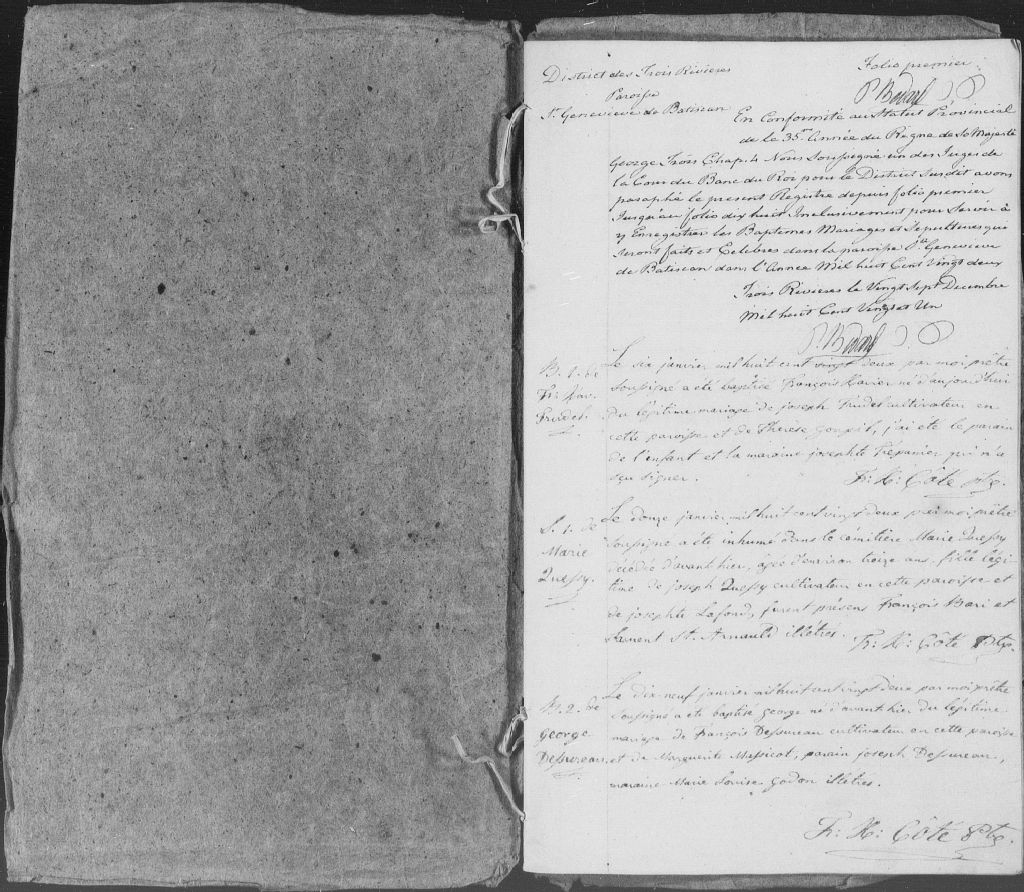 District des Trois Rivieres
Folio premier
Paroisse
P Bedard J P
St. Genevieve de Batiscan
En Conformité au Statut Provincial
de le 35me Année du Regne de Sa Majesté
George Trois Chap. 4 Nous Soussigné un des Juges de
la Cour du Banc du Roi pour le District Susdit avons
paraphé le present Registre depuis folio premier
Jusqu'au folio dix huit Inclusivement pour Servir à
y Enregistrer les Baptemes Mariages et Sepultures qui
Seront faits et Celebres dans la paroisse Ste Genevieve
de Batiscan dans l'Année Mil huit Cent Vingt deux
Trois Rivieres le Vingt Sept Decembre
Mil huit Cent Vingt et Un
P. Bedard J P
B. 1. de
Fr. Xav.
Trudel.
Le six janvier mil huit cent vingt deux par moi prêtre
soussigné a été baptisé François Xavier né d'aujourd'hui
du légitime mariage de joseph Trudel cultivateur en
cette paroisse et de Therese Goupil, j'ai été le parain
de l'enfant et la maraine josephte Trepanier qui n'a
sçu signer.
Fr: X: Côté Ptre.
S. 1. de
Marie
Quessy.
Le douze janvier mil huit cent vingt deux par moi prêtre
soussigné a été inhumé dans le cémitière Marie Quessy
décédée d'avant hier, agée d'environ treize ans, fille légi-
time de joseph Quessy cultivateur en cette paroisse et
de josephte Lafond, furent présens François Bari et
Laurent St. Arnauld illétrés.
Fr: X: Côté Ptre.
B. 2. de
George
Dessureau
Le dix-neuf janvier mil huit cent vingt deux par moi prêtre
soussigné a été baptisé george né d'avant hier du légitime
mariage de François Dessureau cultivateur en cette paroisse
et de Marguerite Massicot, parain joseph Dessureau,
maraine Marie Louise Godon illétrés.
Fr: X: Côté Ptre.